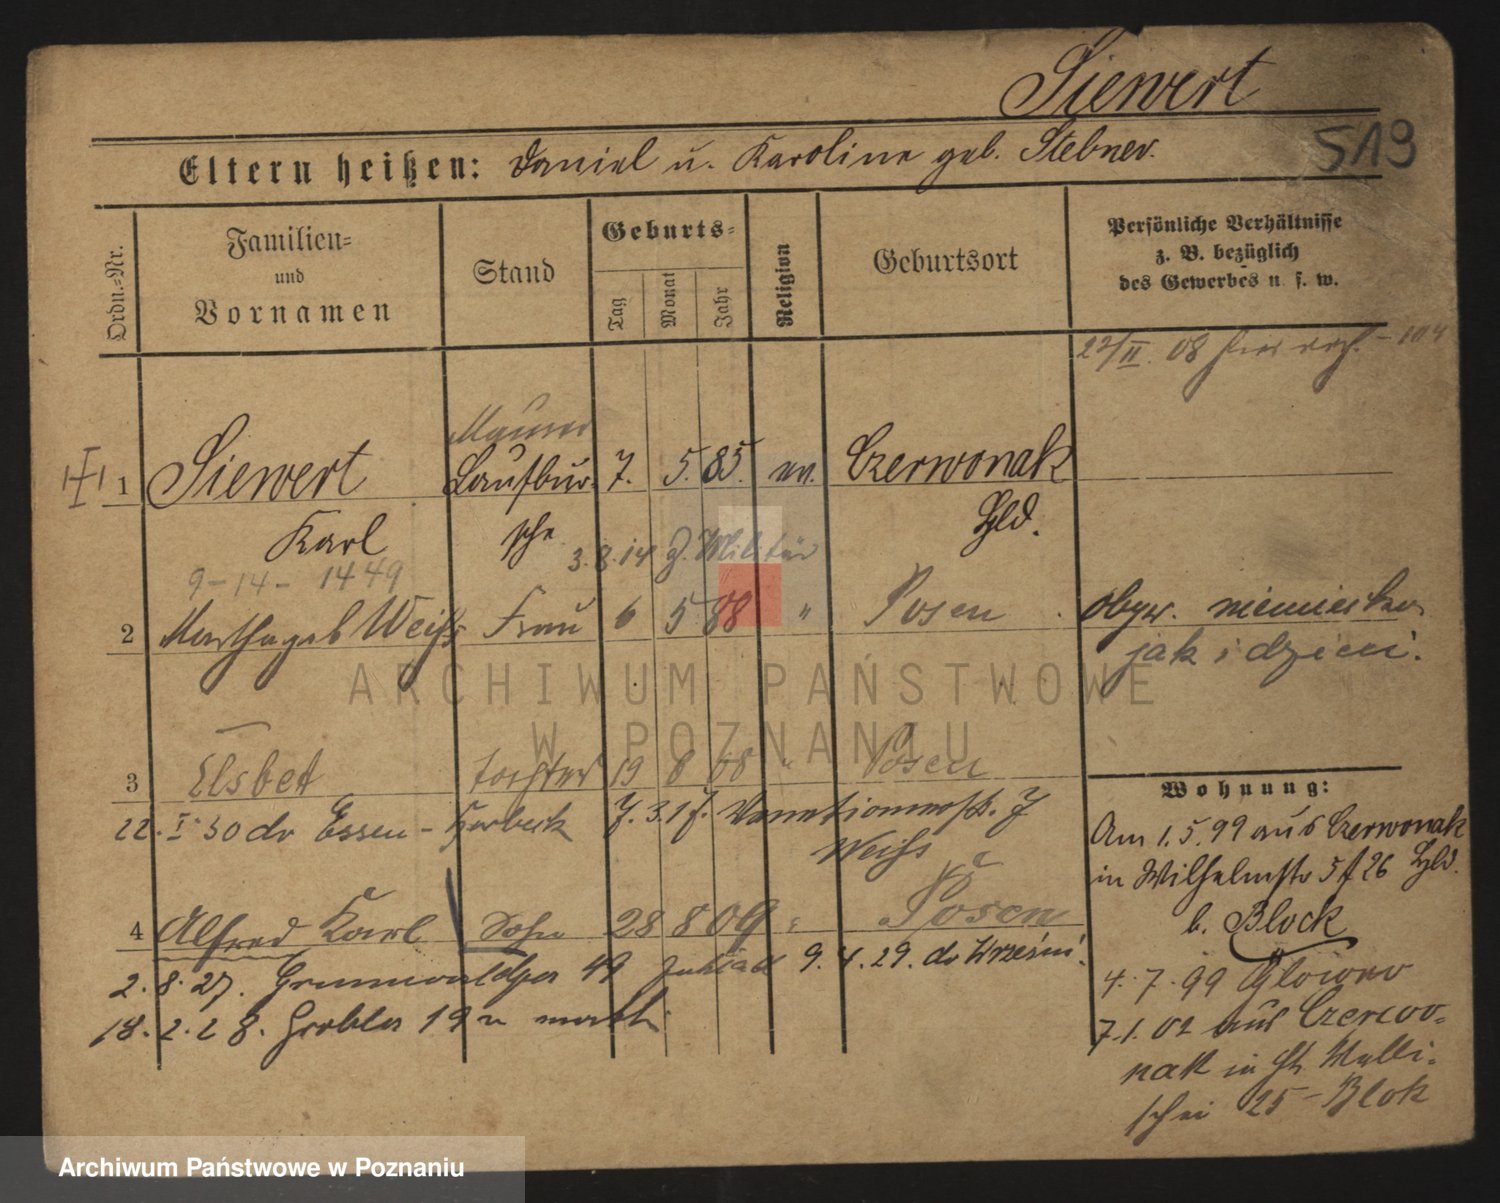 Siewert
519
Eltern heißen: Daniel u. Karoline geb. Stebner.
Ordn.-Nr.
Familien-
und
Vornamen
Stand
Geburts-
Tag
Monat
Jahr
Religion
Geburtsort
Persönliche Verhältnisse
z. B. bezüglich
des Gewerbes u. s. w.
22/II. 08
Maurer
1 Siewert Laufbur- 7. 5. 85. ev. Czerwonak
Karl sche Hld.
3.8.14 z. Militär
9-14- 1449
2 Martha geb Weiß Frau 6 5 88 " Posen
obyw. niemiecka
jak i dzieci.
3 Elsbet Tochter 19 8 08 " Posen
22. I 30 do Essen - Horbeck 7. 3. 17.
Weiß
4 Alfred Karl Sohn 28 8 09 " Posen
2. 8. 27. 49 9. 4. 29. do Wrześni.
18. 2. 28. Grobla 19 u matki
Wohnung:
Am 1.5.99 aus Czerwonak
in Wilhelmstr 5 f 26 Hld.
b. Block
4. 7. 99 Glowno
7.1.02 aus Czerwo-
nak in St. Walli-
schei 25 - Blok
ARCHIWUM PAŃSTWOWE
W POZNANIU
Archiwum Państwowe w Poznaniu